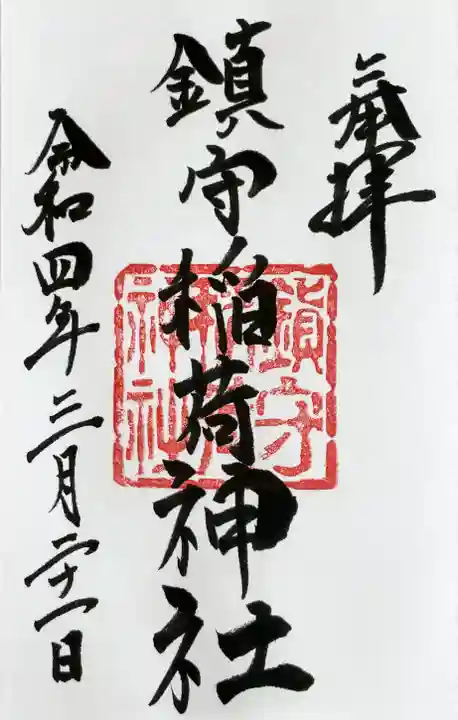 奉拝
鎮守稲荷神社
鎮守稲荷神社
令和四年三月二十一日